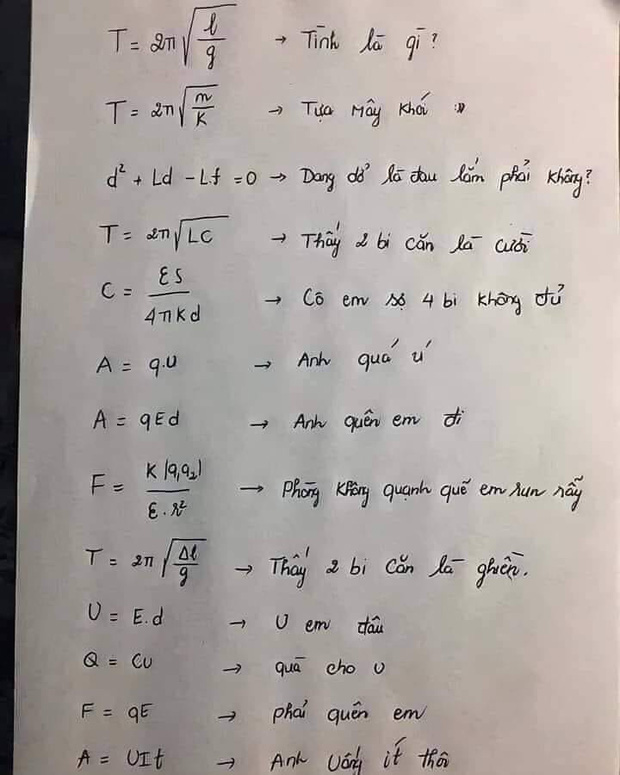 T = 2π√(l/g) → Tình là gì?
T = 2π√(m/K) → Tựa mây khói »
d² + Ld - Lf = 0 → Dang dở là đau lắm phải không?
T = 2π√LC → Thấy 2 bi căn là cười
C = εS/4πKd → Cô em sợ 4 bi không đủ
A = q.U → Anh quá ú
A = qEd → Anh quên em đi
F = K|q₁q₂|/ε.r² → Phòng không quạnh quẽ em run rẫy
T = 2π√(Δl/g) → Thấy 2 bi căn là ghiền.
U = E.d → U em đâu
Q = CU → quà cho U
F = qE → phải quên em
A = UIt → Anh Uống ít thôi